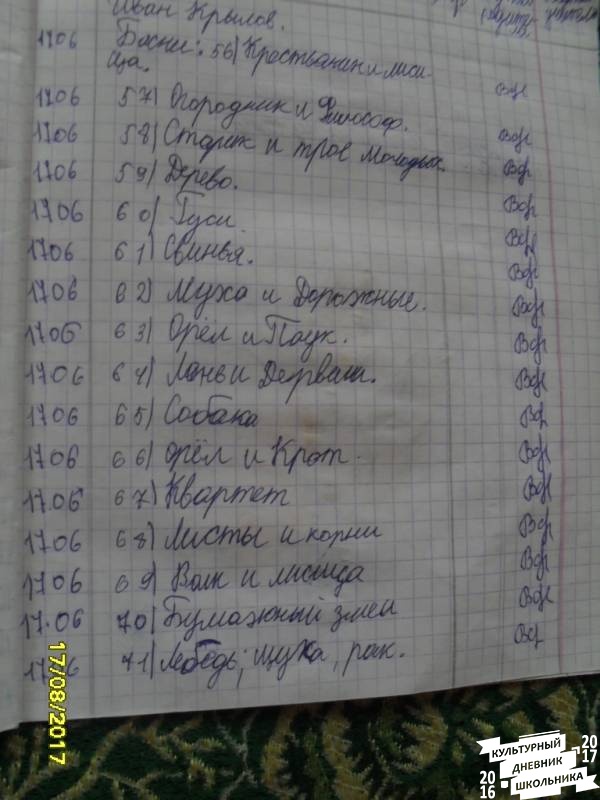 Иван Крылов.
1706 Басни: 56) Крестьянин и лиси-
ца.
1706 57) Огородник и Философ.
1706 58) Старик и трое молодых.
1706 59) Дерево.
1706 60) Гуси.
1706 61) Свинья.
1706 62) Муха и Дорожные.
1706 63) Орёл и Паук.
1706 64) Лань и Дервиш.
1706 65) Собака
1706 66) Орёл и Крот.
17.06 67) Квартет
1706 68) Листы и корни
1706 69) Волк и лисица
17.06 70) Бумажный змей
71) Лебедь, щука, рак.
17/08/2017
КУЛЬТУРНЫЙ
ДНЕВНИК
ШКОЛЬНИКА
20
16
20
17